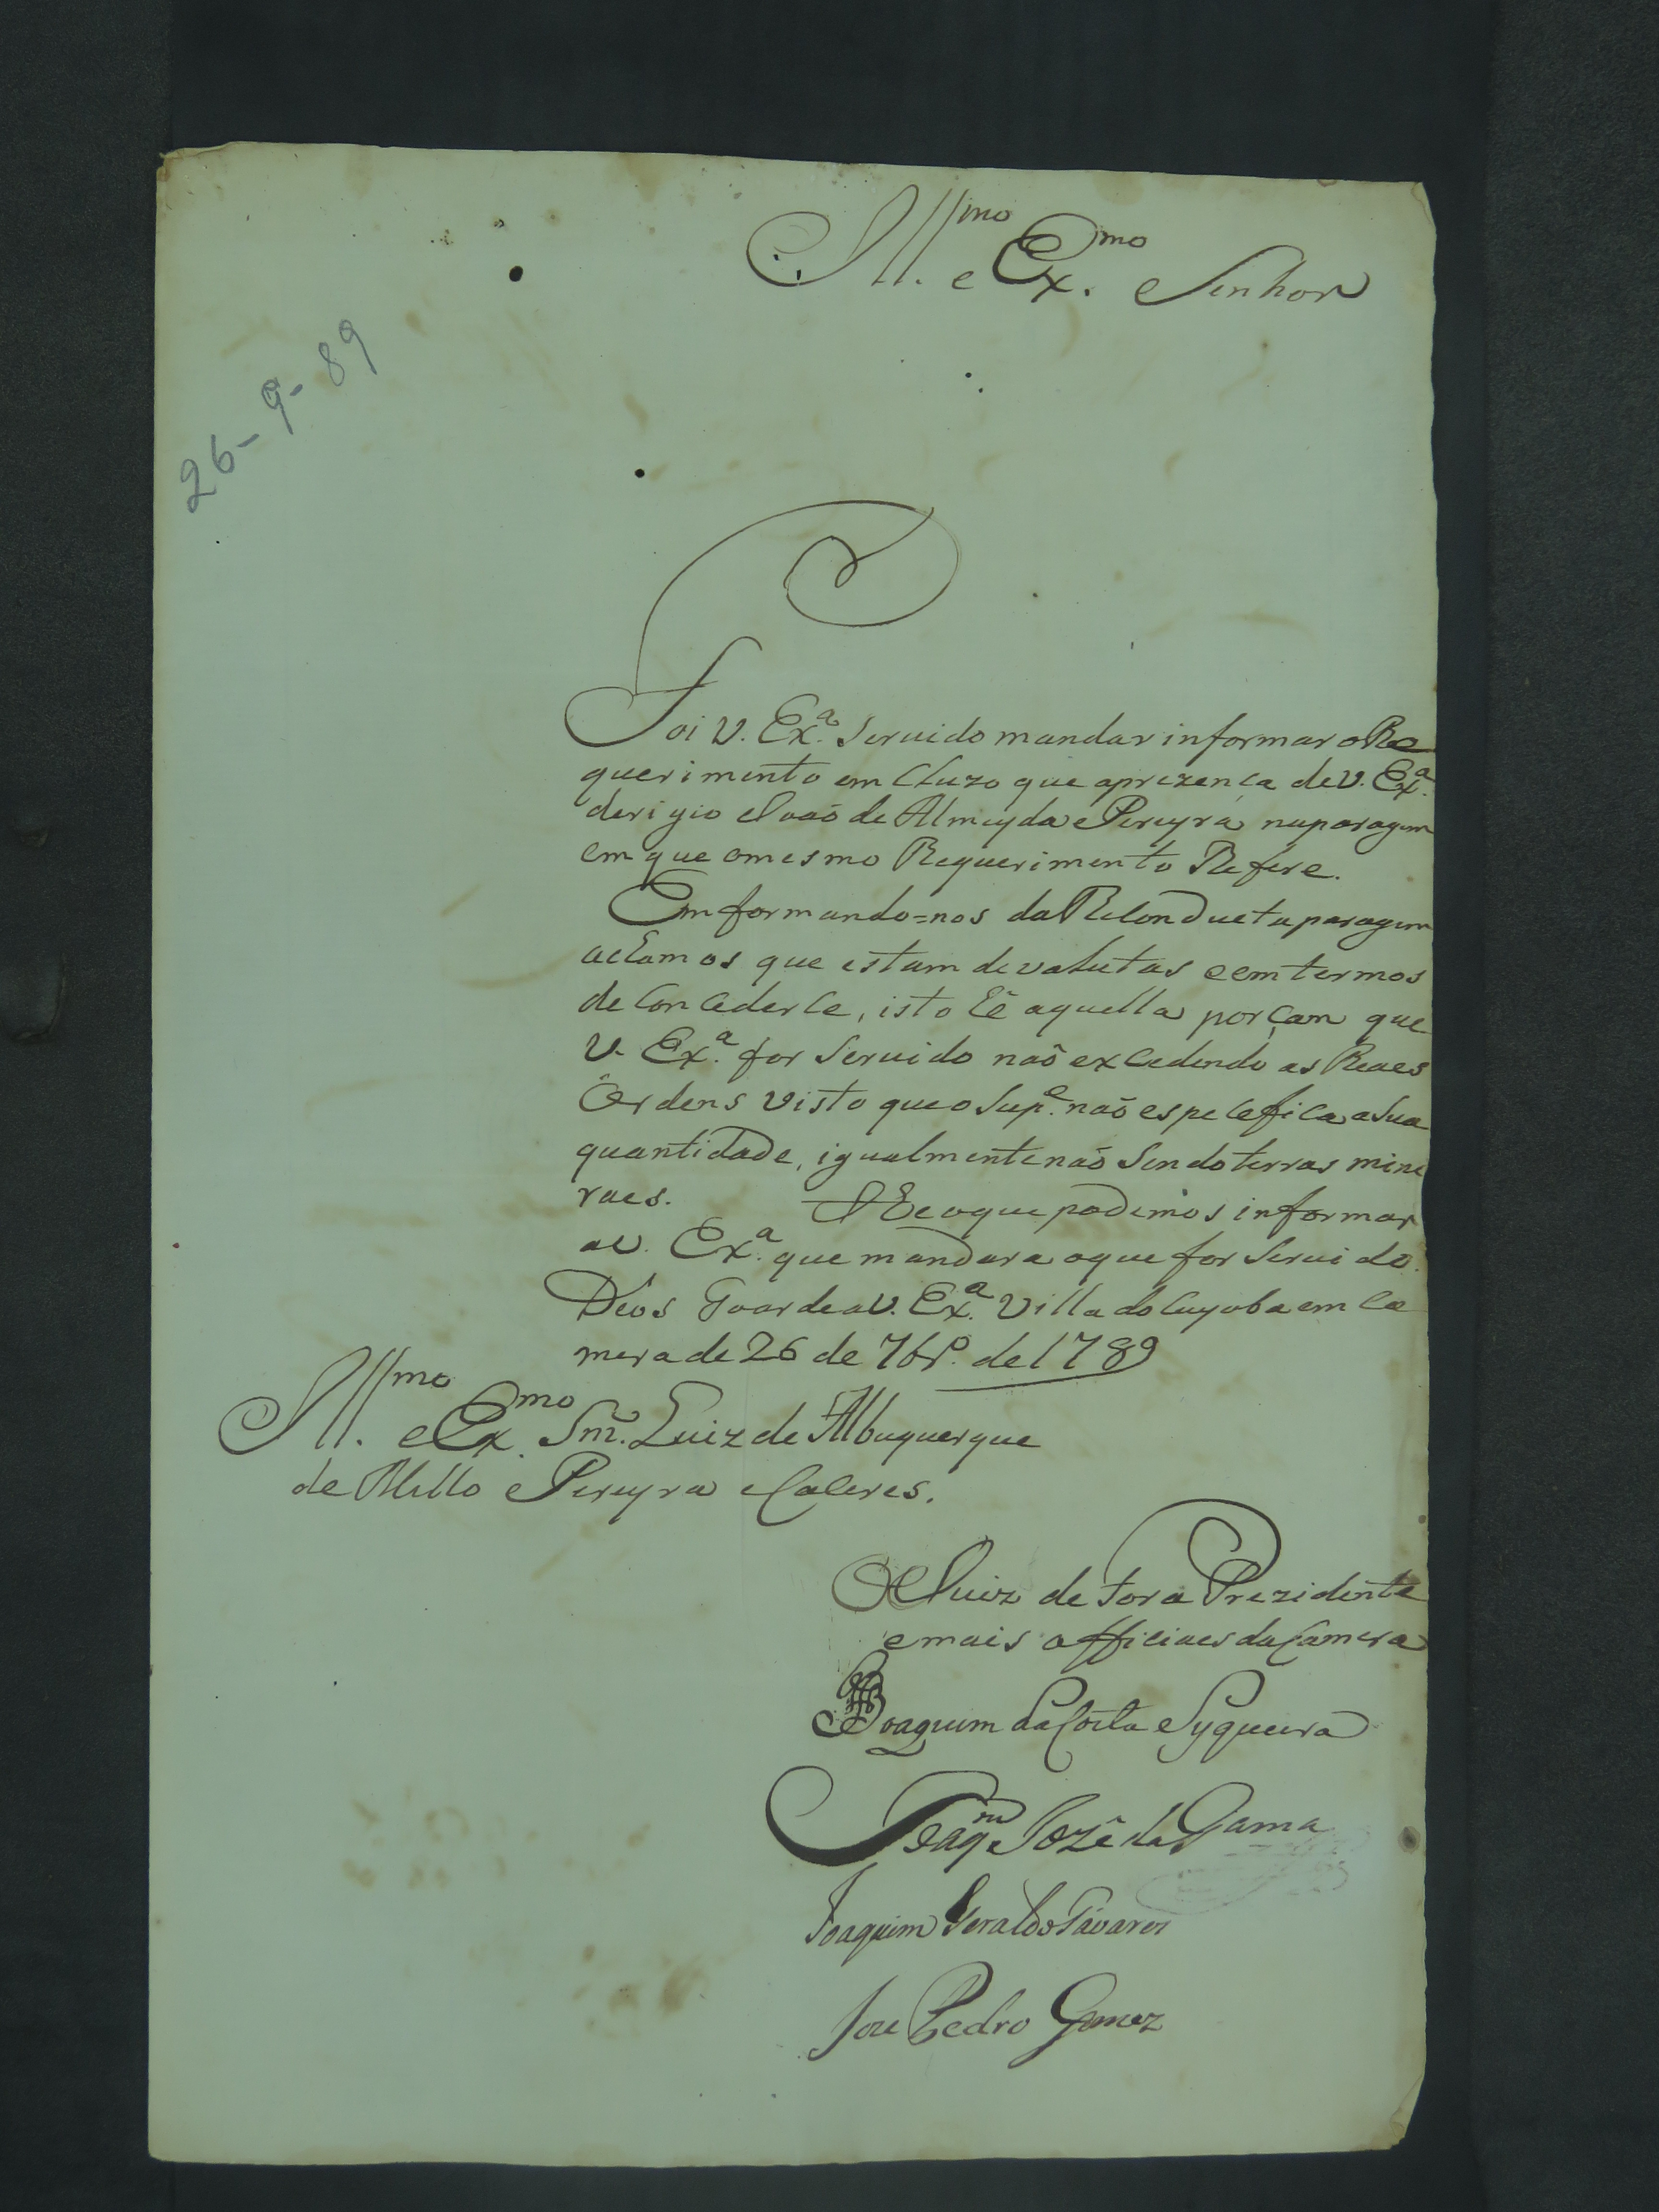 Ill.mo e Ex.mo Senhor
26-9-89
Foi V. Ex.a Servido mandar informar o Re
querimento em cluzo que aprezença de V. Ex.a
derigio Joaõ de Almeyda Pereyra, naparagem
em que omesmo Requerimento Refere.
Em formando=nos da paragem
achamos que estam devalutas e em termos
de Con cederce, isto hé aquella porçam que
V. Ex.a for Servido naõ excedendo as Reaes
Ordens visto que o Sup.e naõ espelefica a Sua
quantidade, igualmente naõ Sendo terras mine
raes. He oque podemos informar
a V. Ex.a que mandara oque for Servido.
Deos Guarde a V. Ex.a Villa do Cuyaba em Ca
mera de 26 de 7br.o de 1789
Ill.mo e Ex.mo Snr. Luiz de Albuquerque
de Mello Pereyra e Caceres.
O Juiz de Fora Prezidente
e mais officiaes da Camera
Joaquim da Costa Syqueira
Joaq.m Jozê da Gama
Joaquim Geraldo Tavares
Joze Pedro Gomez